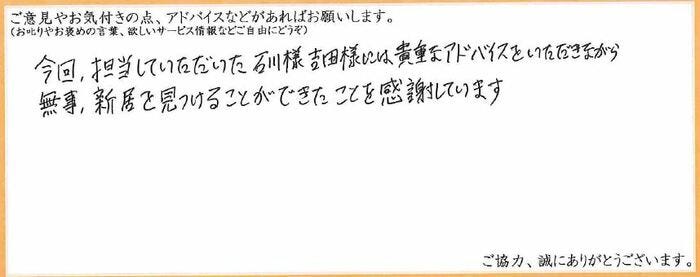 ご意見やお気付きの点、アドバイスなどがあればお願いします。
(お叱りやお褒めの言葉、欲しいサービス情報などご自由にどうぞ)
今回,担当していただいた石川様吉田様には貴重なアドバイスをいただきながら
無事,新居を見つけることができたことを感謝しています
ご協力、誠にありがとうございます。